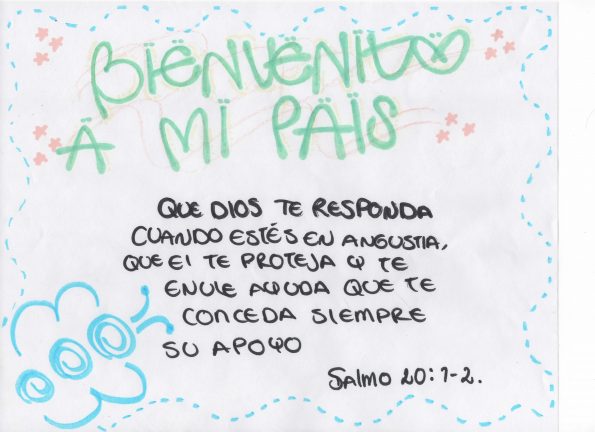 BIENVENITO
A MI PAIS
QUE DIOS TE RESPONDA
CUANDO ESTÉS EN ANGUSTIA,
QUE El TE PROTEJA Y TE
ENVIE AYUDA QUE TE
CONCEDA SIEMPRE
SU APOYO
Salmo 20:1-2.